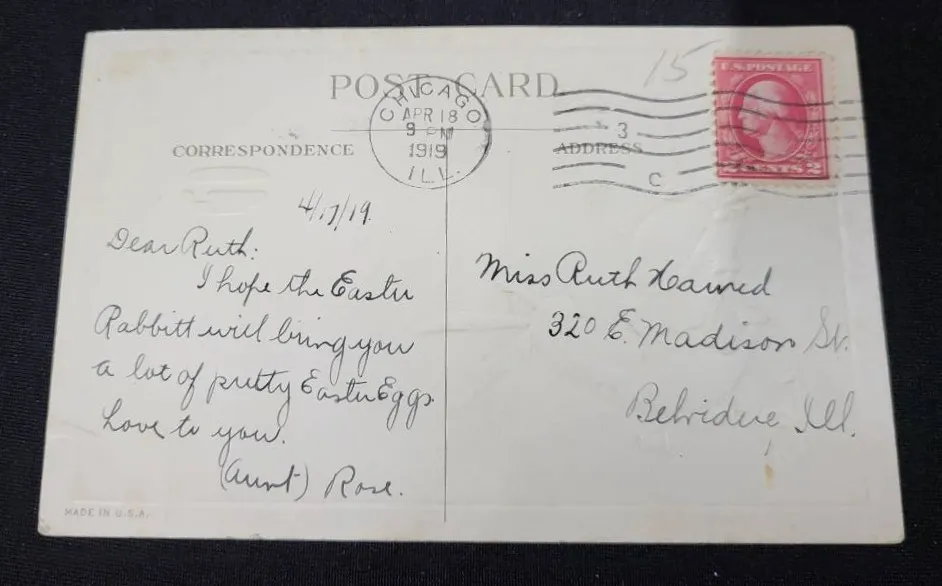 15
POST CARD
CHICAGO
APR 18
9 PM
1919
ILL.
3
C
U.S. POSTAGE
2 CENTS 2
CORRESPONDENCE
ADDRESS
4/17/19
Dear Ruth:
I hope the Easter
Rabbitt will bring you
a lot of pretty Easter Eggs.
Love to you.
(Aunt) Rose.
Miss Ruth
320 E. Madison St.
Belvidere, Ill.
MADE IN U.S.A.